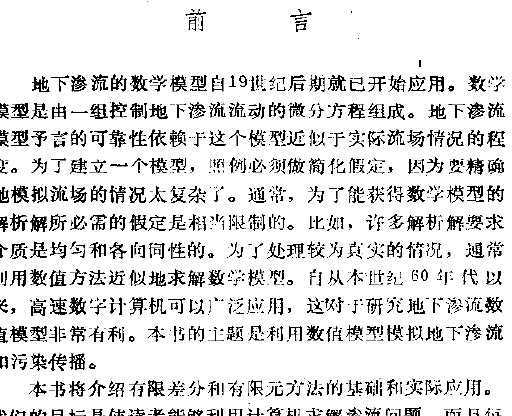 前 言
地下渗流的数学模型自19世纪后期就已开始应用。数学
模型是由一组控制地下渗流流动的微分方程组成。地下渗流
模型予言的可靠性依赖于这个模型近似于实际流场情况的程
度。为了建立一个模型，照例必须做简化假定，因为要精确
地模拟流场的情况太复杂了。通常，为了能获得数学模型的
解析解所必需的假定是相当限制的。比如，许多解析解要求
介质是均匀和各向同性的。为了处理较为真实的情况，通常
利用数值方法近似地求解数学模型。自从本世纪60年代以
来，高速数字计算机可以广泛应用，这对于研究地下渗流数
值模型非常有利。本书的主题是利用数值模型模拟地下渗流
和污染传播。
本书将介绍有限差分和有限元方法的基础和实际应用。
我们的目标是使读者能够利用计算机求解渗流问题，而且每